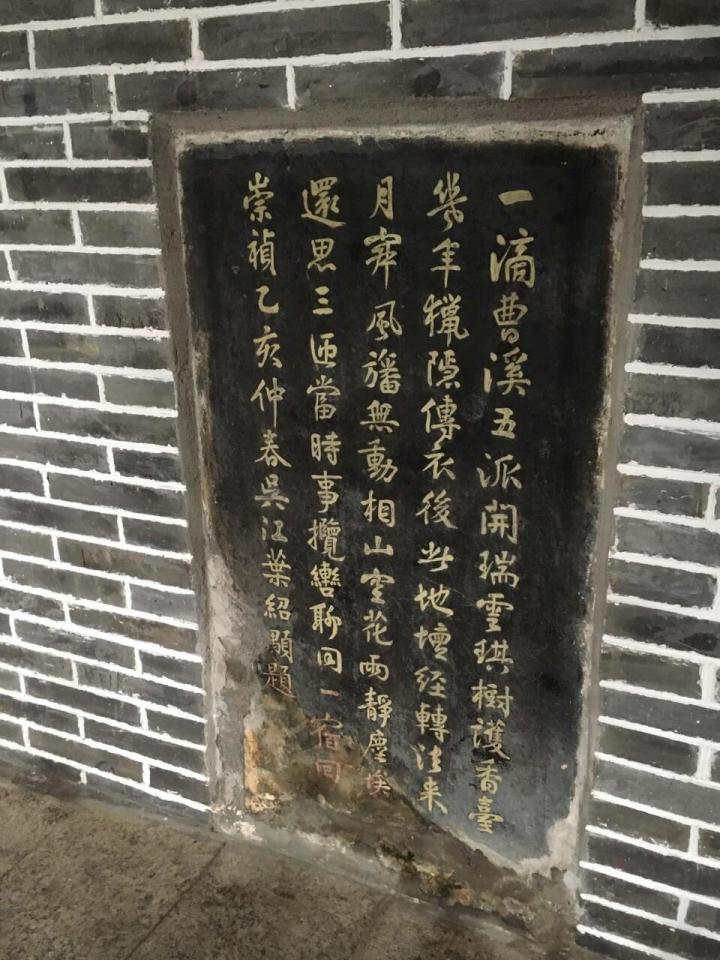 一滴曹溪五派開瑞雲琪樹護香臺
幾年獵隱傳衣後此地壇經轉法來
月寂風旛無動相山空花雨靜塵埃
還思三匝當時事攬轡聊回一宿回
崇禎乙亥仲春吳江葉紹顒題